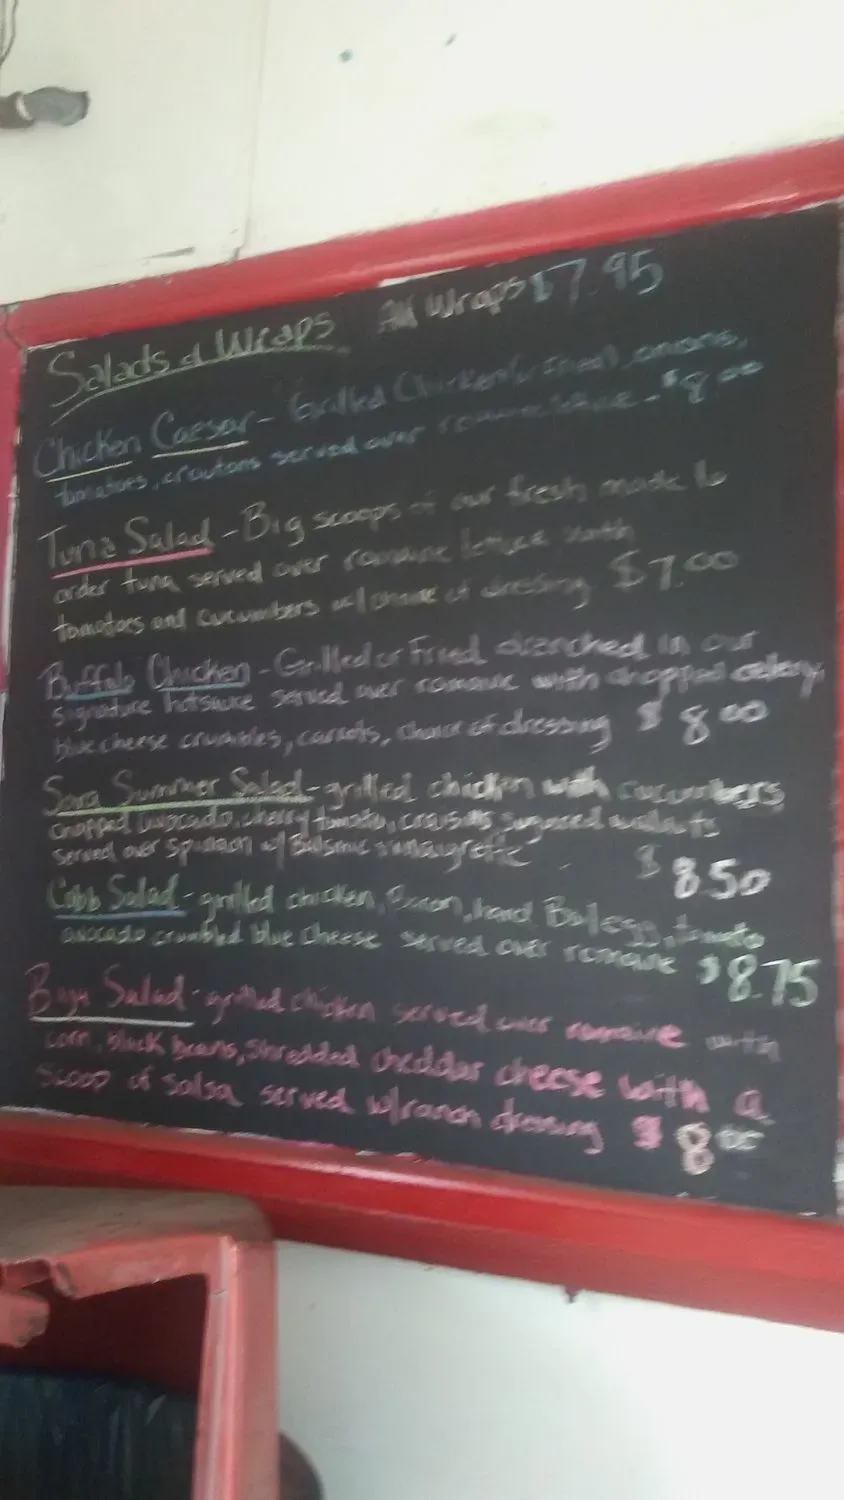 Salads & Wraps All Wraps $7.95
Chicken Caesar - Grilled Chicken (or Fried), onions,
tomatoes, croutons served over romaine - $8.00
Tuna Salad - Big scoops of our fresh made to
order tuna served over romaine lettuce with
tomatoes and cucumbers w/ choice of dressing $7.00
Buffalo Chicken - Grilled or Fried drenched in our
signature hotsauce served over romaine with chopped celery,
blue cheese crumbles, carrots, choice of dressing $8.00
Sara Summer Salad - grilled chicken with cucumbers
chopped avocado, cherry tomato, craisins sugared walnuts
served over spinach w/ Balsmic vinaigrette $8.50
Cobb Salad - grilled chicken, Bacon, hard Boil egg, tomato
avocado crumbled blue cheese served over romaine $8.75
Baja Salad - grilled chicken served over romaine with
corn, black beans, shredded cheddar cheese with a
scoop of salsa served w/ranch dressing $8.00